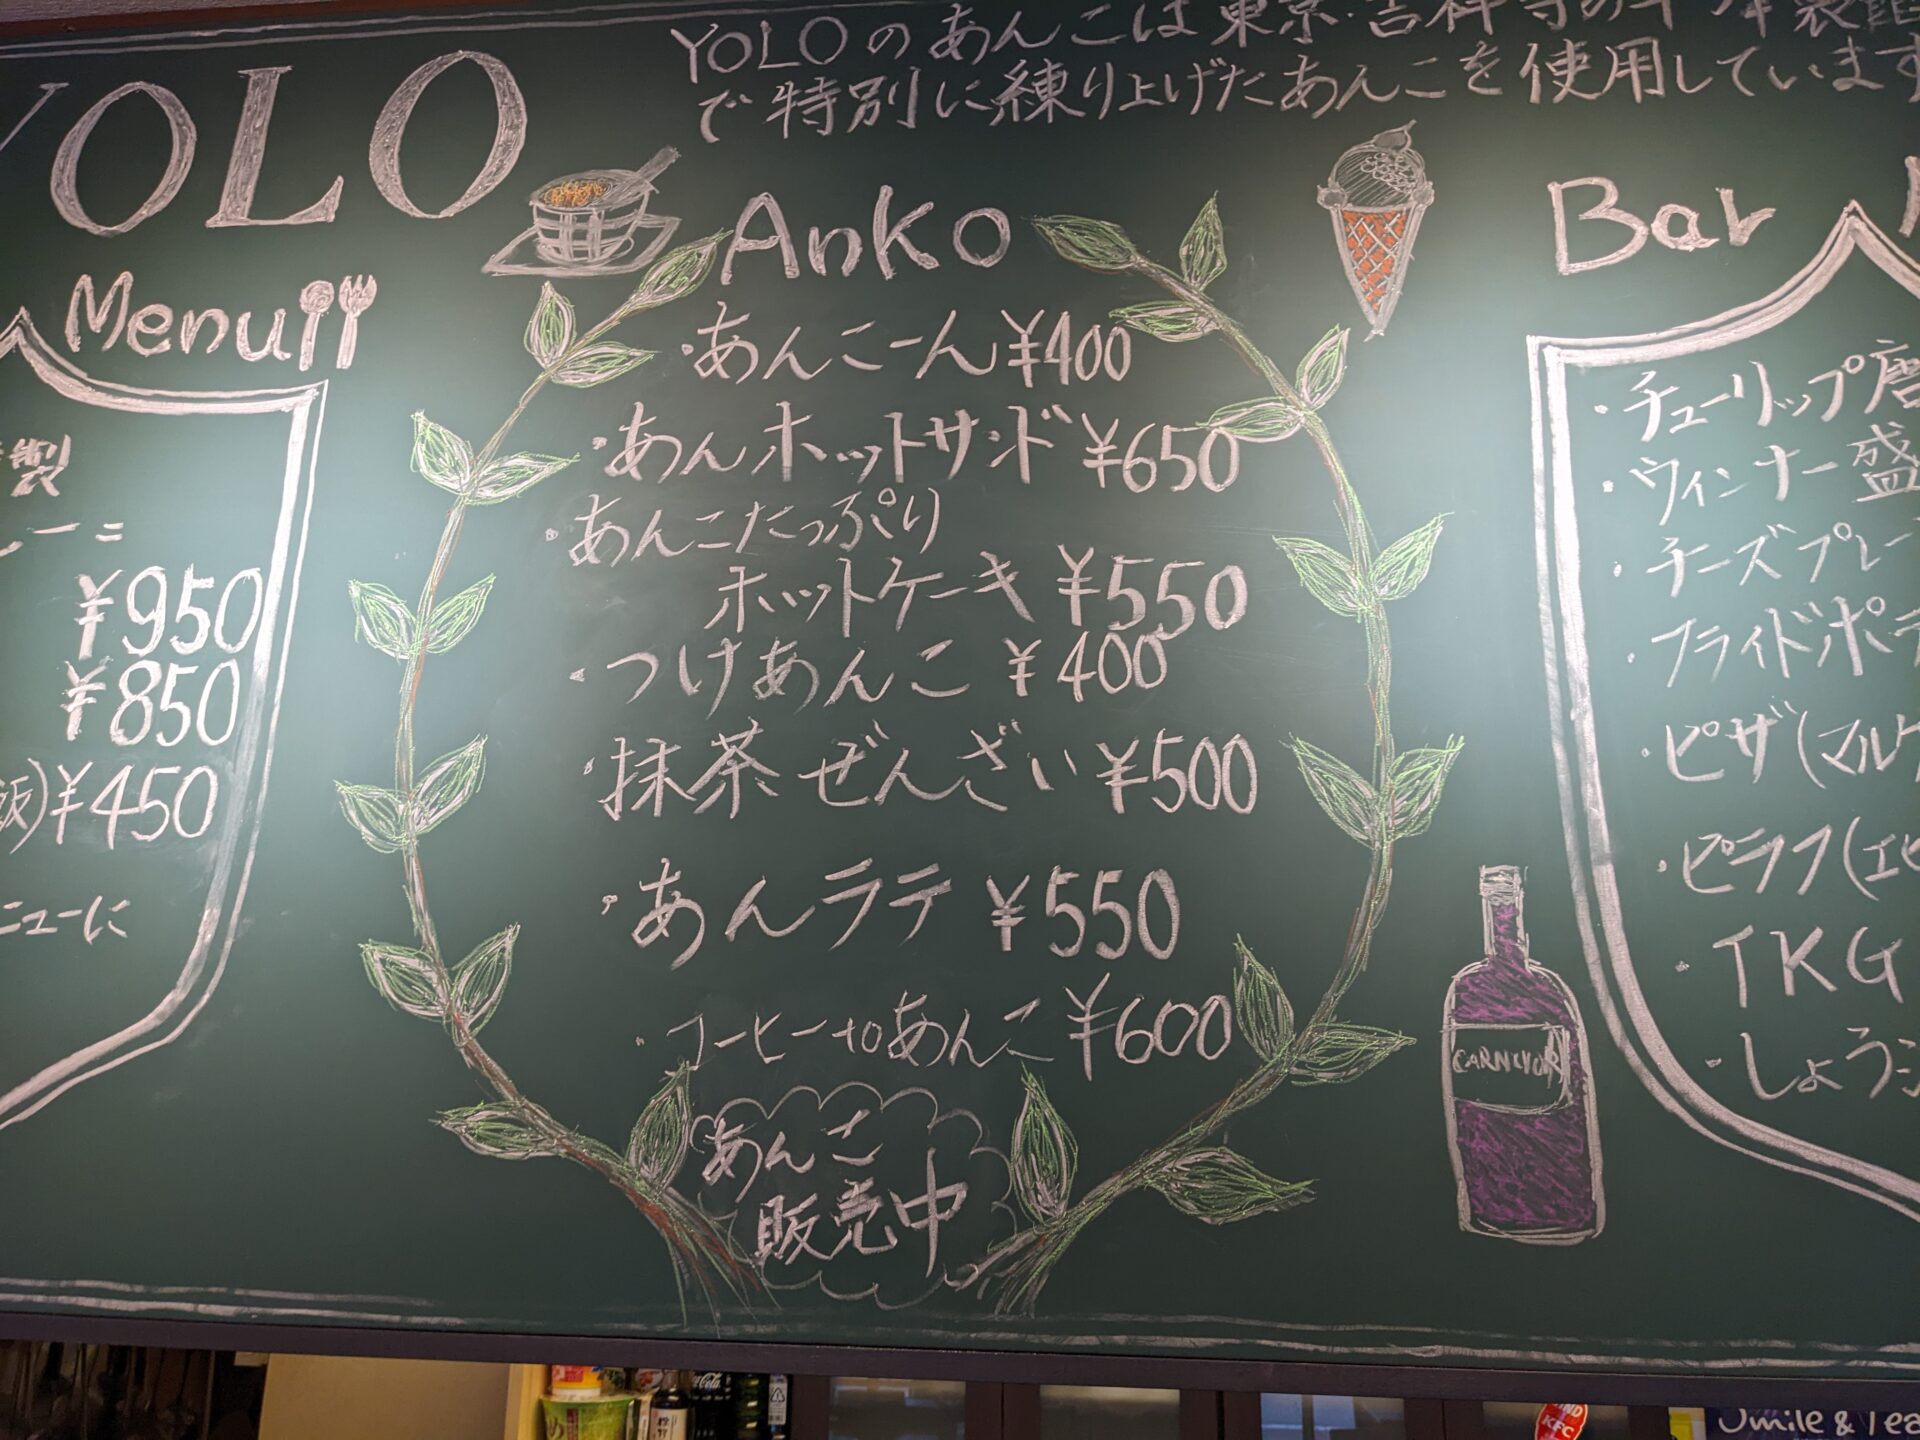 YOLO
Menu
製
ーニ
¥950
¥850
飯)¥450
ニューに
YOLOのあんこは東京・吉祥寺の
で特別に練り上げたあんこを使用しています
Anko
・あんこーん¥400
・あんホットサンド¥650
・あんこたっぷり
ホットケーキ¥550
・つけあんこ¥400
・抹茶ぜんざい¥500
・あんラテ¥550
・コーヒーtoあんこ¥600
あんこ
販売中
Bar
・チューリップ唐
・ウィンナー盛
・チーズプレー
・フライドポテ
・ピザ(マルゲ
・ピラフ(エビ
・TKG
・しょうゆ
CARNIVOR
Coca-Cola
KFC
Smile & Tea